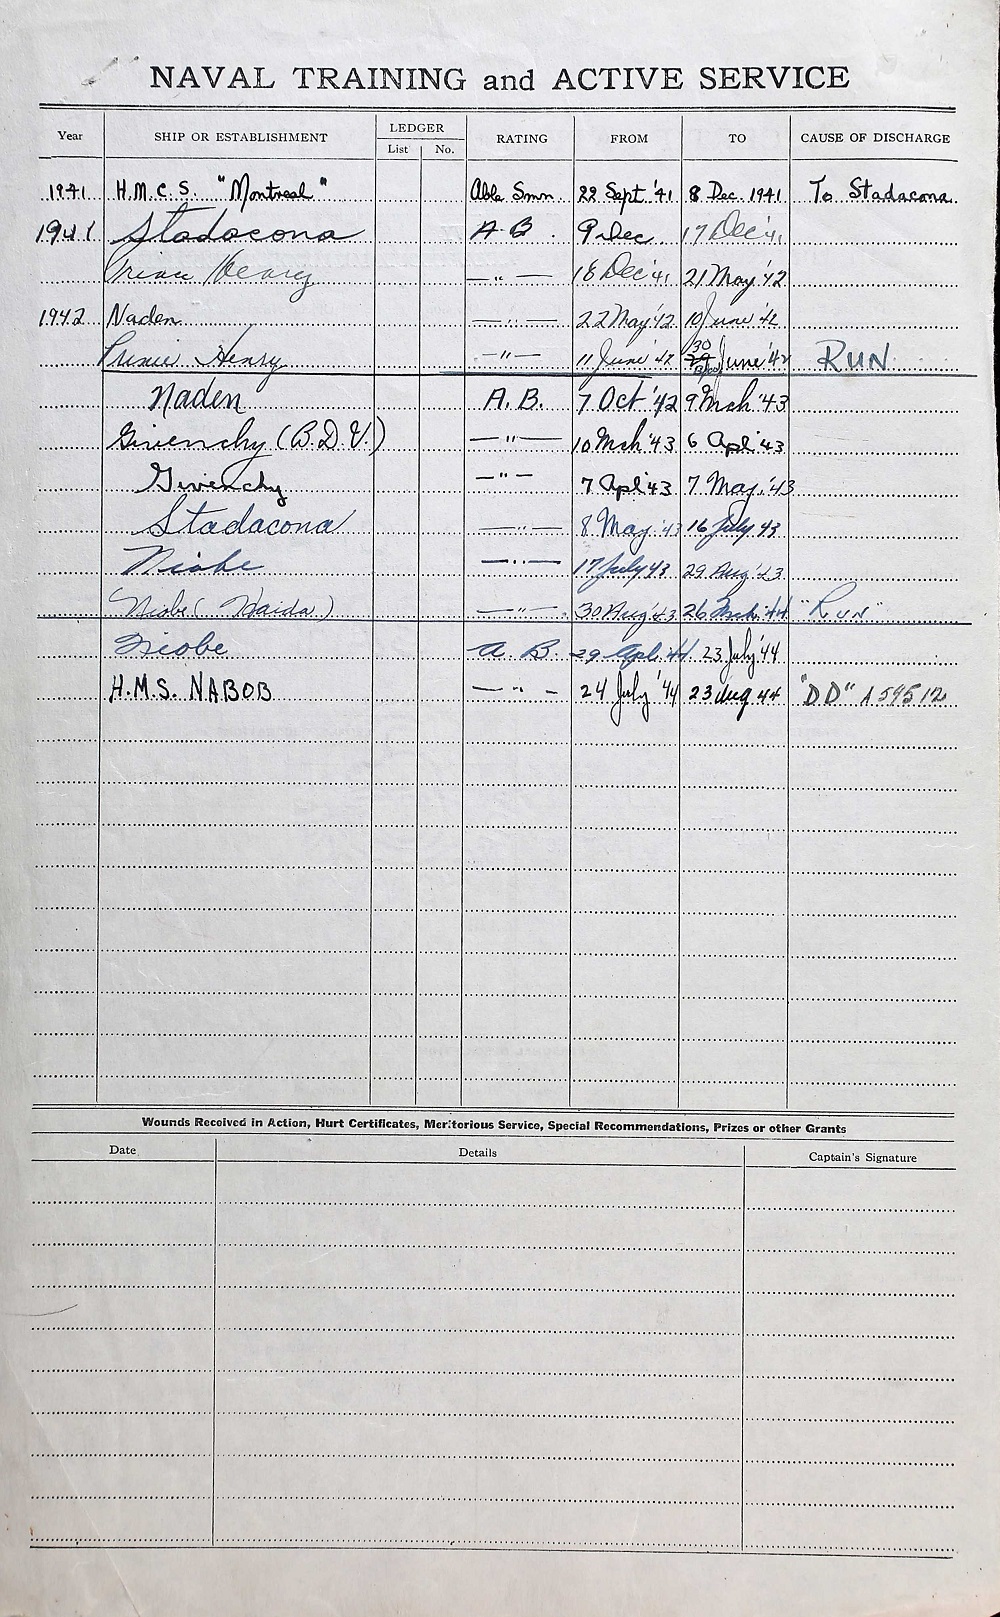 NAVAL TRAINING and ACTIVE SERVICE
Year SHIP OR ESTABLISHMENT LEDGER List No. RATING FROM TO CAUSE OF DISCHARGE
1941 H.M.C.S. "Montreal" Able Smn 22 Sept '41 8 Dec. 1941 To Stadacona
1941 Stadacona A.B. 9 Dec 17 Dec '41
Prince Henry —"— 18 Dec '41 21 May '42
1942 Naden —"— 22 May '42 10 June '42
Prince Henry —"— 11 June '42 30 June '42 RUN
Naden A.B. 7 Oct '42 9 Mch '43
Givenchy (B.D.V.) —"— 10 Mch '43 6 Apl '43
Givenchy —"— 7 Apl '43 7 May '43
Stadacona —"— 8 May '43 16 July 43
Niobe —"— 17 July 43 29 Aug '43
Niobe (Haida) —"— 30 Aug '43 26 Mch '44 "RUN"
Niobe A.B. 29 Apl. 44 23 July '44
H.M.S. NABOB —"— 24 July '44 23 Aug 44 "DD" A 59512
Wounds Received in Action, Hurt Certificates, Meritorious Service, Special Recommendations, Prizes or other Grants
Date Details Captain's Signature